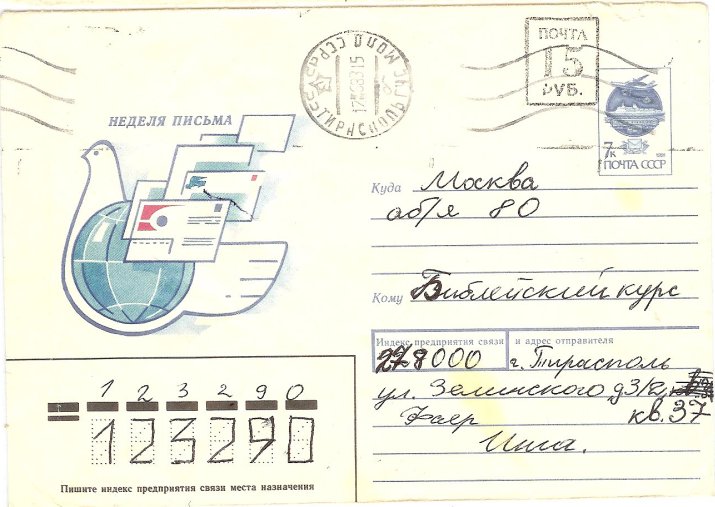 НЕДЕЛЯ ПИСЬМА
ПОЧТА
15
РУБ.
7к
1991
ПОЧТА СССР
Куда Москва
аб/я 80
Кому Библейский курс
Индекс предприятия связи и адрес отправителя
278000 г. Тирасполь
ул. Зелинского д3/2,
Фаер кв. 37
Инна.
1 2 3 2 9 0
123290
Пишите индекс предприятия связи места назначения